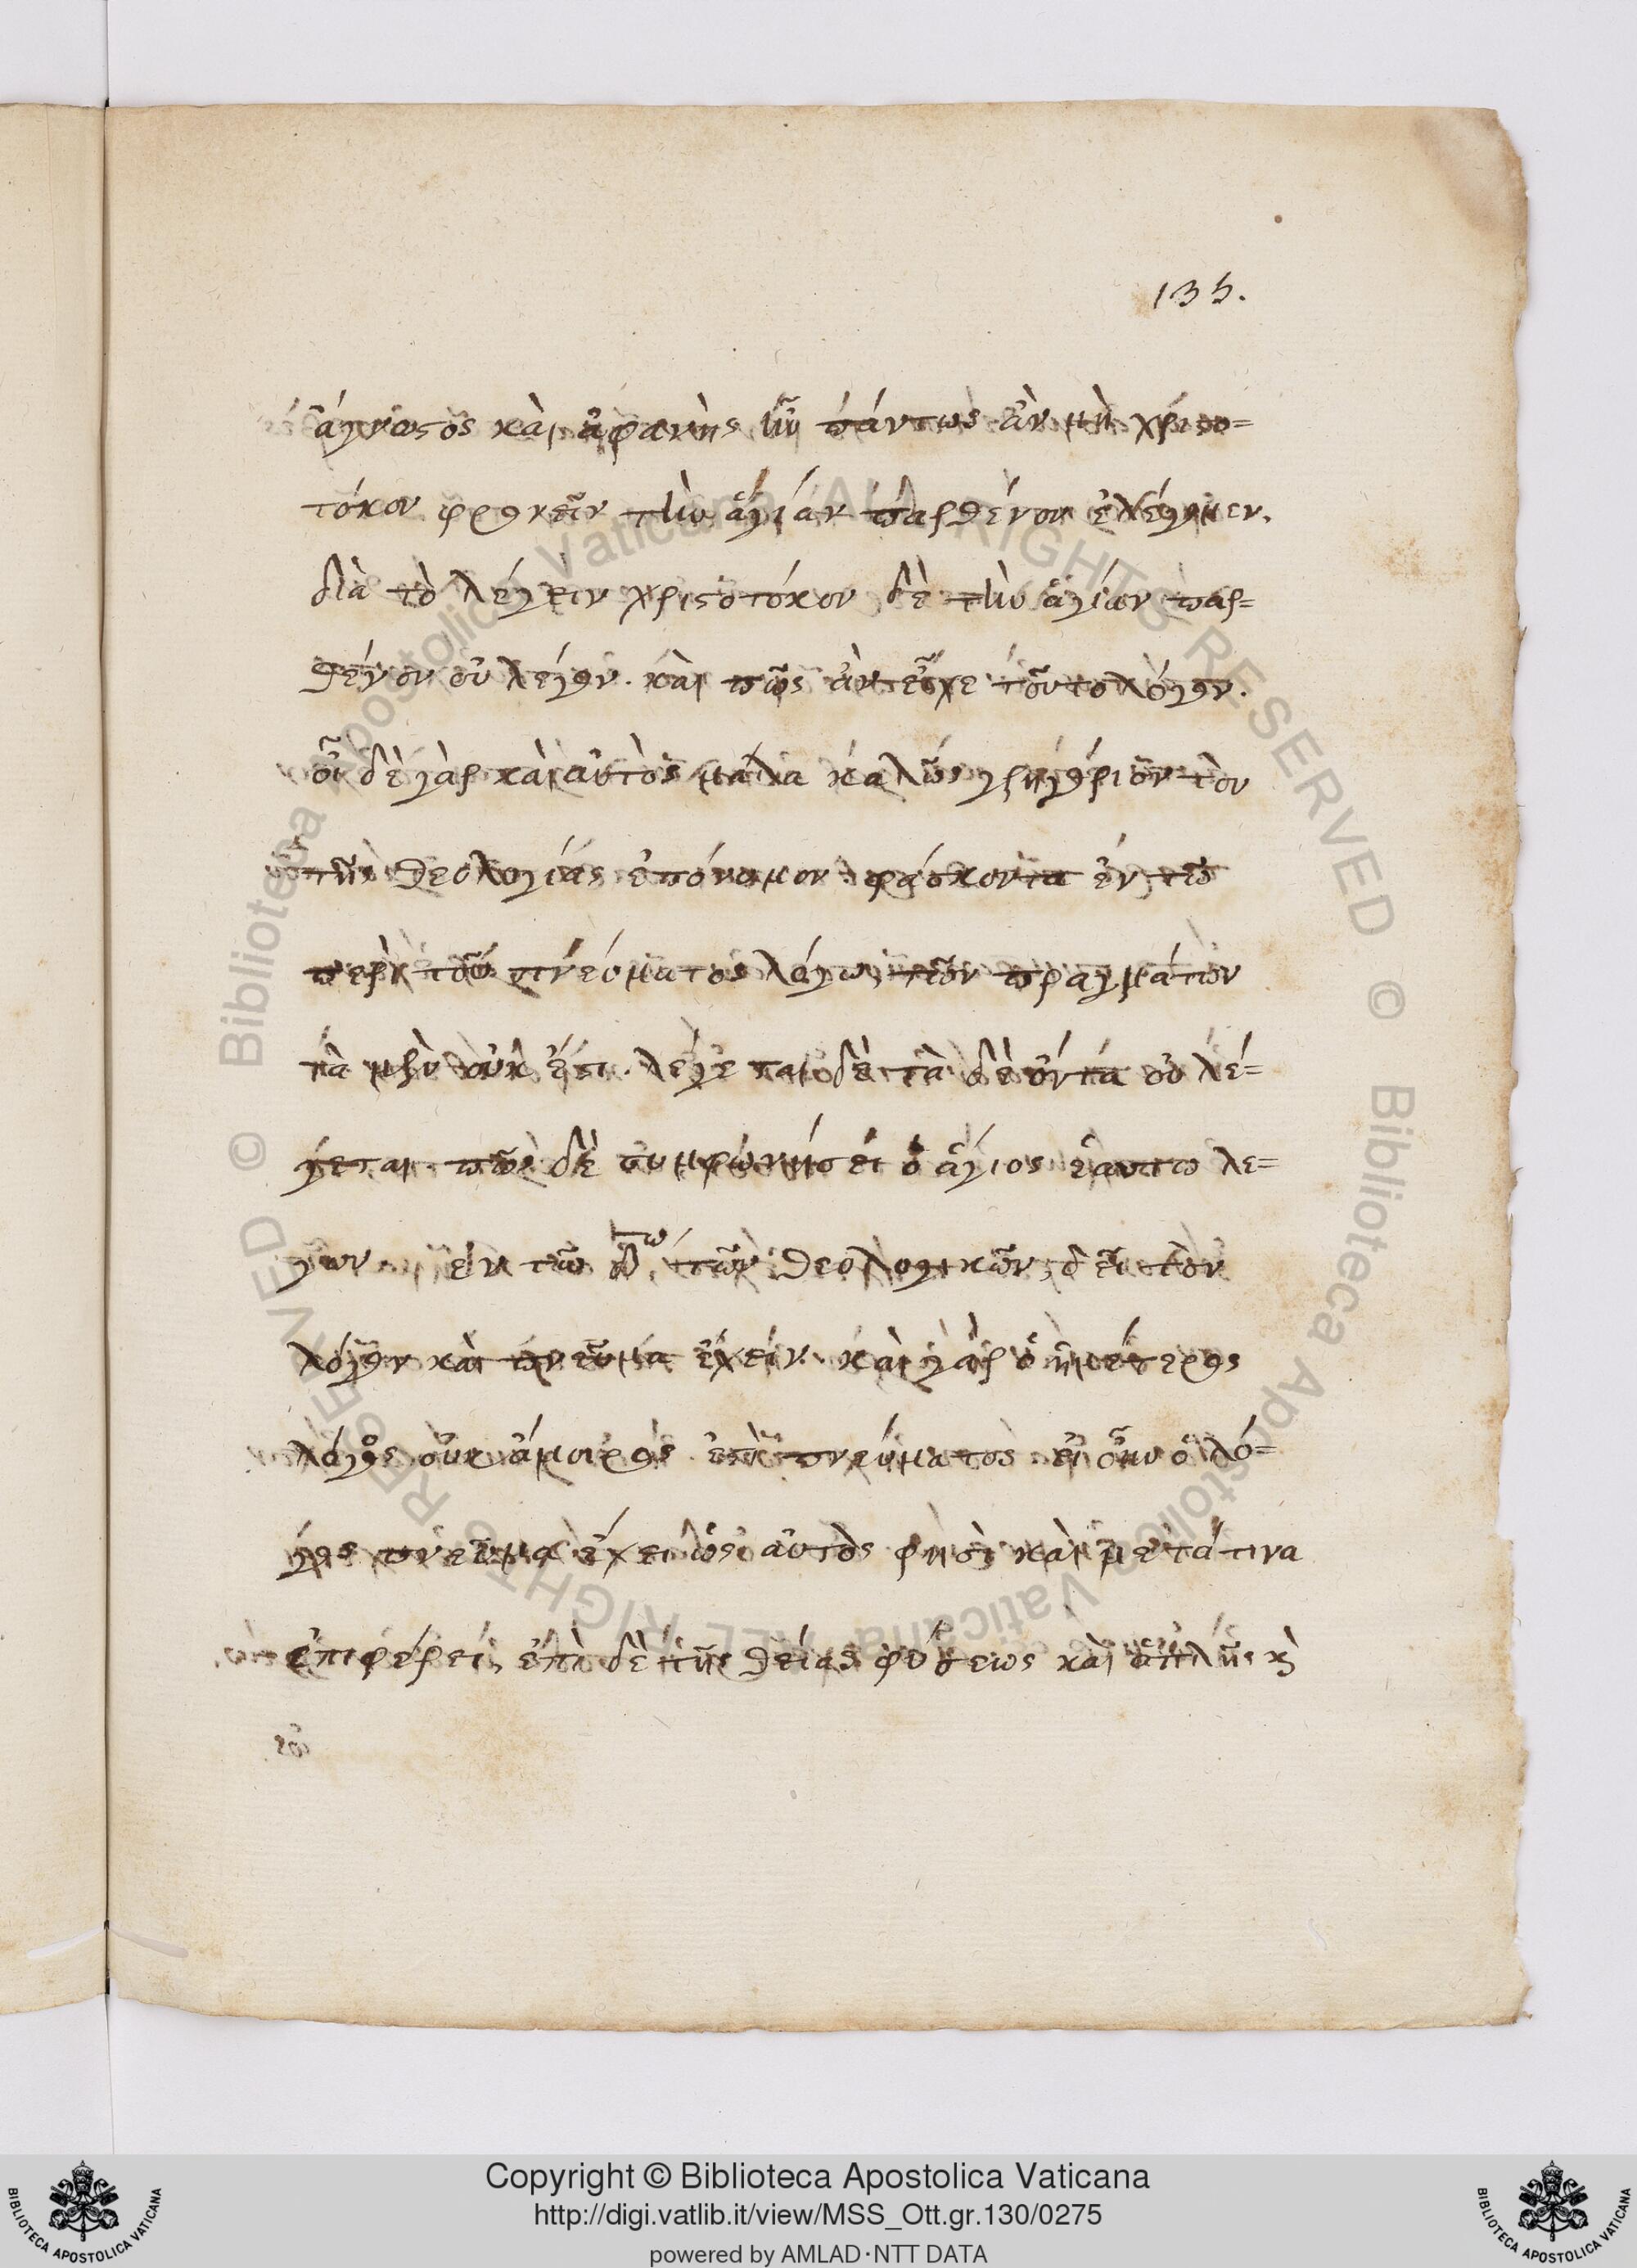 135.
ἄγνωστος καὶ ἀφανὴς ἦν πάντως ἂν μὴ χριστο=
τόκον φρονεῖν τὴν ἁγίαν παρθένον ἐλέγομεν.
διὰ τὸ λέγειν χριστοτόκον δὲ τὴν ἁγίαν παρ=
θένον οὐ λέγον. καὶ πῶς ἀντεῖχε τοῦτο λόγον.
οἶδε γὰρ καὶ αὐτὸς μάλα καλῶς γρηγόριον τὸν
τῆς θεολογίας ἐπόνομον φάσκοντα ἐν τῶ
περὶ τοῦ πνεύματος λόγω, τῶν πραγμάτων
τὰ μὲν οὐκ ἔστι. λέγεται δὲ τὰ δὲ ὄντα οὐ λέ=
γεται πῶς δὲ συμφώνήσει ὁ ἅγιος ἑαυτω λέ=
γων ἐν τῶ τῶν θεολογικῶν, δεῖ τὸν
λόγον καὶ πνεῦμα ἔχειν. καὶ γὰρ ὁ ἡμέτερος
λόγος οὐκ ἄμοιρος ἐστὶ πνεύματος εἰ οὖν ὁ λό=
γος πνεῦμα ἔχει ὡς αὐτὸς φησὶ καὶ μετά τινα
ἐπιφέρει, ἐπὶ δὲ τῆς θείας φύσεως καὶ ἁπλῆς κὶ
Copyright © Biblioteca Apostolica Vaticana
http://digi.vatlib.it/view/MSS_Ott.gr.130/0275
powered by AMLAD·NTT DATA
BIBLIOTECA APOSTOLICA VATICANA
BIBLIOTECA APOSTOLICA VATICANA
© Biblioteca Apostolica Vaticana ALL RIGHTS RESERVED © Biblioteca Apostolica Vaticana ALL RIGHTS RESERVED